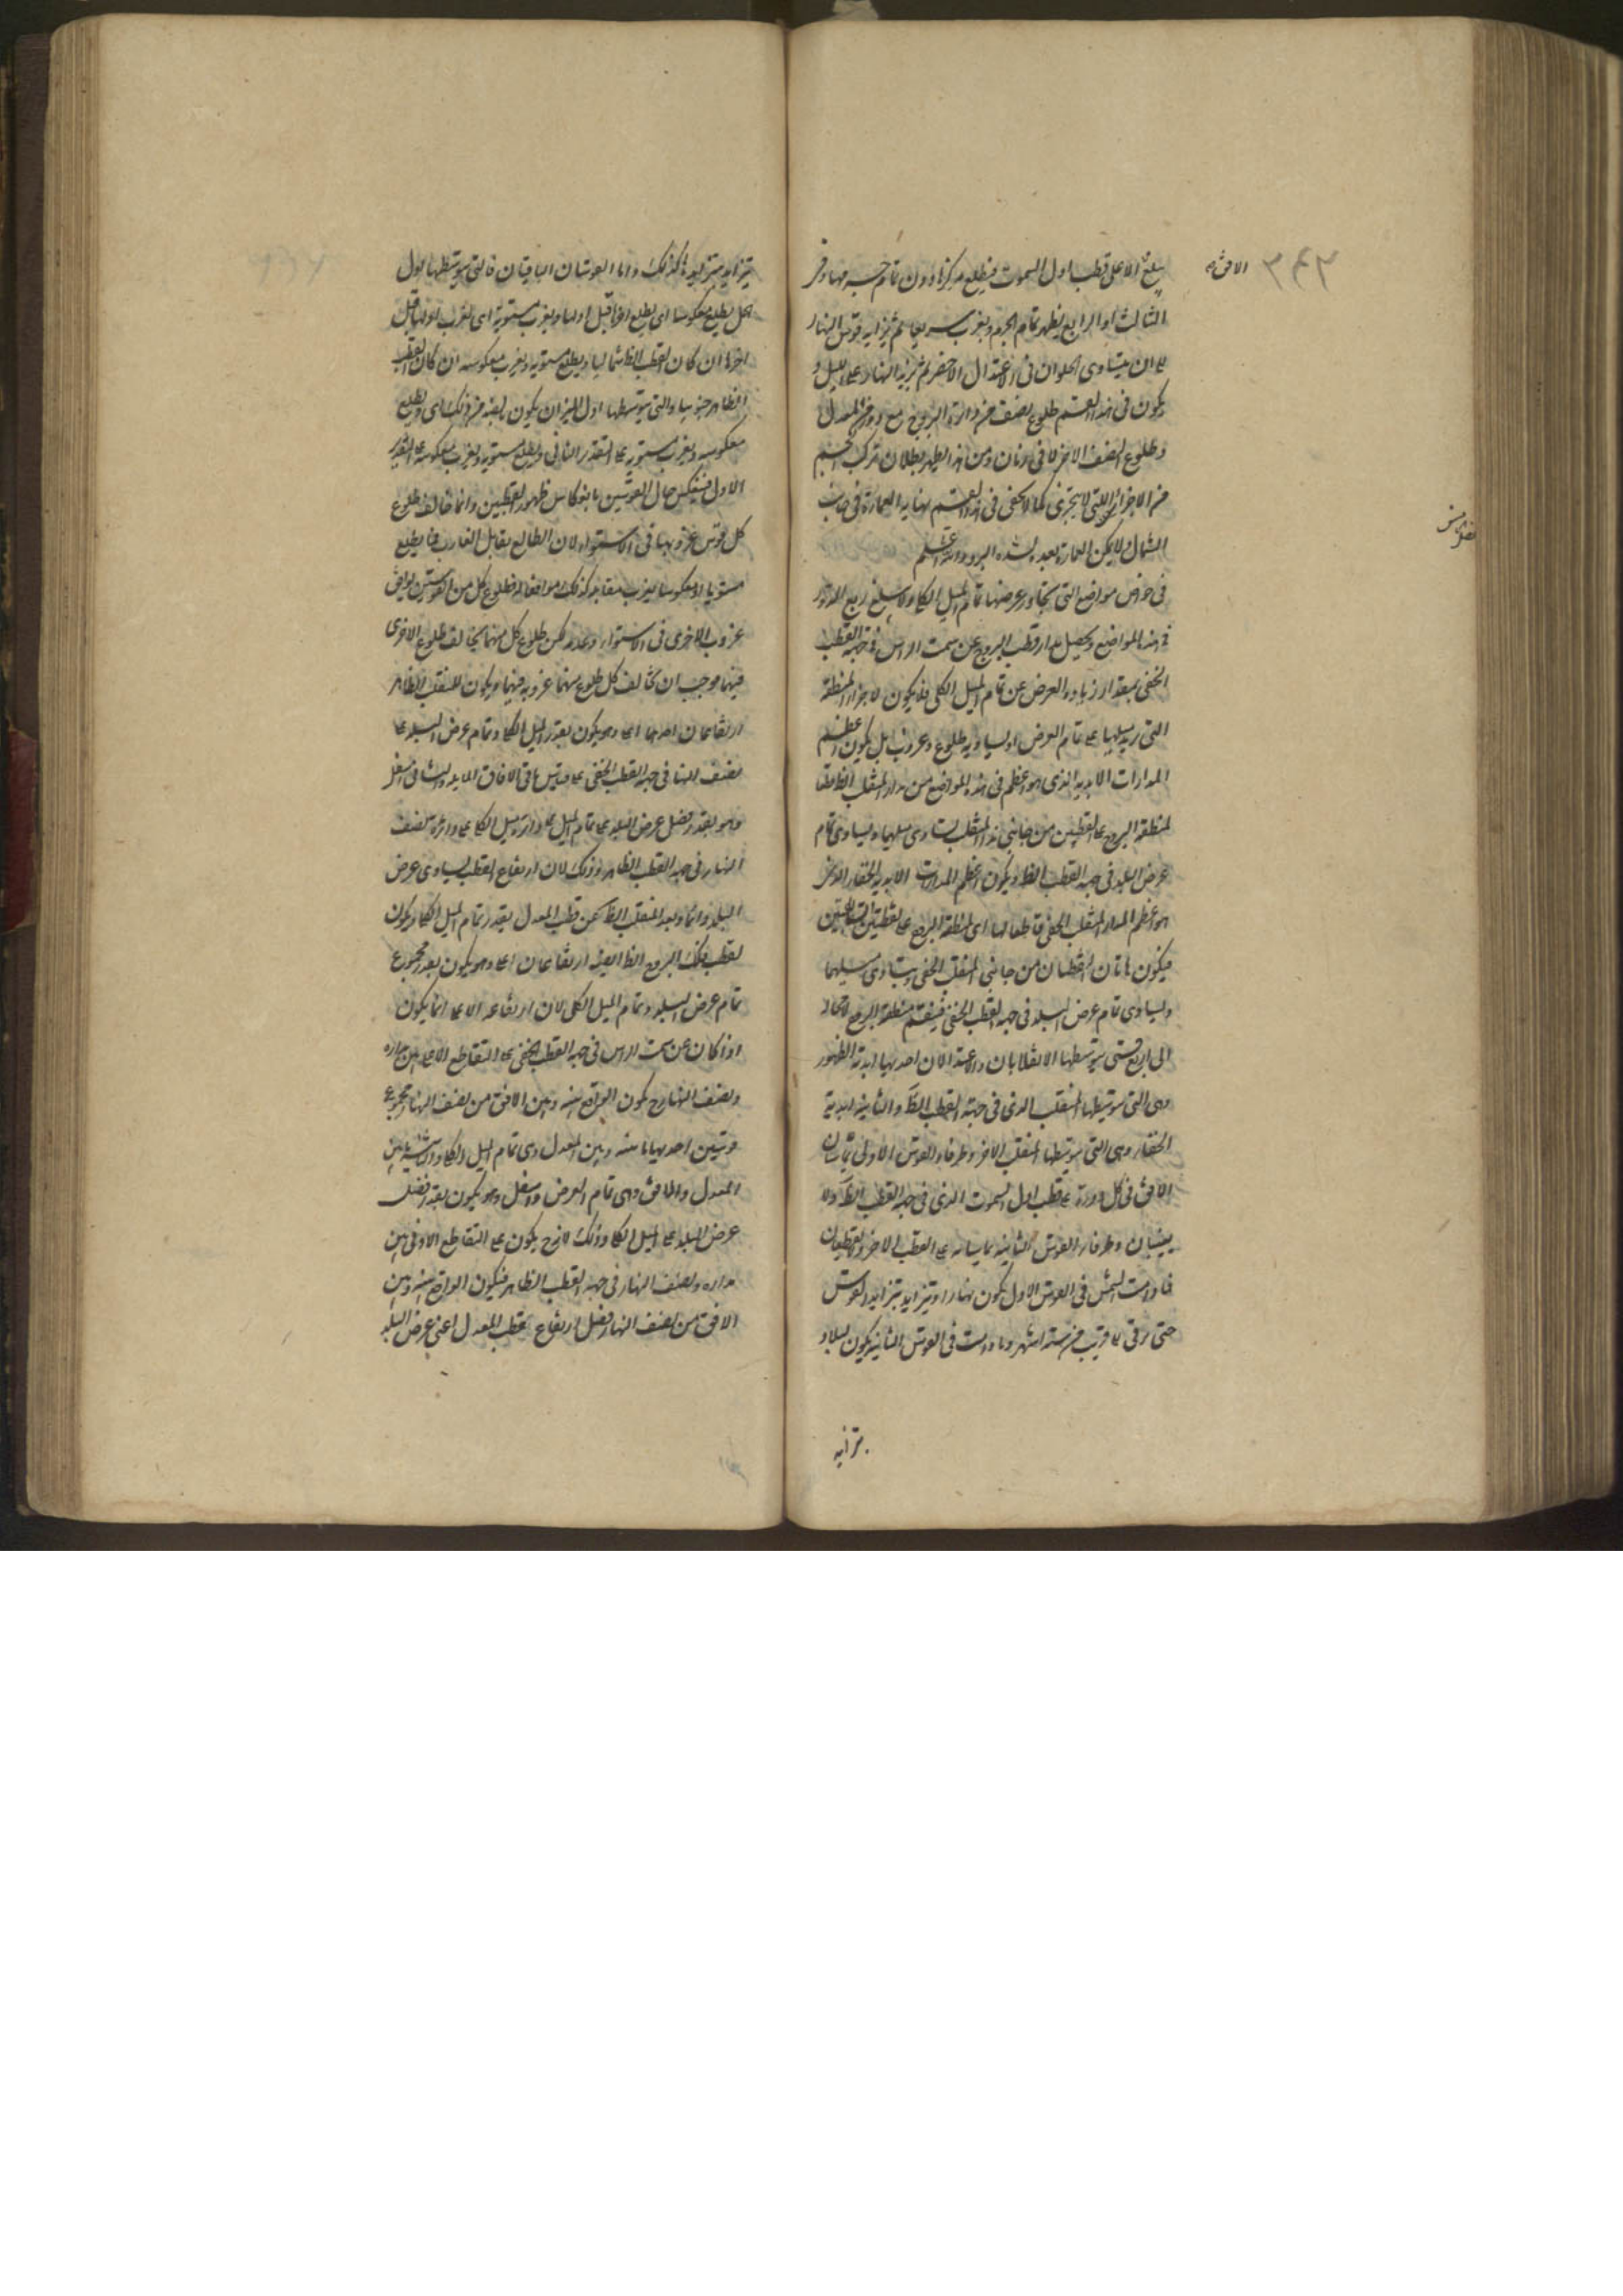 يبلغ الاعلى قطب اول السموت فيطلع مركزها دون تمام جسمها وفى
الثالث او الرابع يظهر تمام الجرم ويغرب سريعا ثم يتزايد قوس النهار
الى ان يتساوى الملوان فى الاعتدال الاخر ثم يزيد النهار على الليل و
يكون فى هذا القسم طلوع نصف من دائرة البروج مع دورة المعدل
وطلوع النصف الاخر لا فى زمان ومن هذا يظهر بطلان تركب الجسم
من الاجزاء التى لا يتجزى كما لا يخفى فى هذا القسم نهاية العمارة فى جانب
الشمال لا يمكن العمارة بعده لشدة البرد والله اعلم
فى خواص مواضع التى تجاوز عرضها تمام الميل الكلى ولا يبلغ ربع الدور
فى هذه المواضع يحصل مدار قطب البروج عن سمت الراس فى جهة القطب
الخفى بمقدار زيادة العرض عن تمام الميل الكلى فلا يكون لاجزاء المنطقة
التى يزيد ميلها على تمام العرض او يساويه طلوع وغروب بل يكون اعظم
المدارات الابدية الذى هو اعظم فى هذه المواضع من مدار المنقلب الظ قاطعا
لمنطقة البروج على نقطتين من جانبى هذا المنقلب يتساوى ميلهما ويساوى تمام
عرض البلد فى جهة القطب الظ ويكون اعظم المدارات الابدية الخفاء الذى
هو اعظم المدار المنقلب الخفى قاطعا لها اى لمنطقة البروج على نقطتين
فيكون هاتان النقطتان من جانبى المنقلب الخفى ويتساوى ميلهما
ويساوى تمام عرض البلد فى جهة القطب الخفى فينقسم منطقة البروج
الى اربع قسى يتوسطها الانقلابان والاعتدالان احديها ابدية الظهور
وهى التى يتوسطها المنقلب الذى فى جهة القطب الظ والثانية ابدية
الخفاء وهى التى يتوسطها المنقلب الاخر وطرفا القوس الاولى يماسان
الافق فى كل دورة على قطب اول السموت الذى فى جهة القطب الظ ولا
يغيبان وطرفا القوس الثانية يماسانه على القطب الاخر ولا يطلعان
فما دامت الشمس فى القوس الاول يكون نهارا ويتزايد بتزايد القوس
حتى يرقى الى قريب من ستة اشهر وما دامت فى القوس الثانية يكون ليلا و
يتزايد
يتزايد بتزايدها كذلك واما القوسان الباقيتان فالتى يتوسطها اول
الحمل يطلع معكوسا اى يطلع اخرها قبل اولها ويغرب مستوية اى يغرب اولها قبل
اخرها ان كان القطب الظ شماليا ويطلع مستوية ويغرب معكوسة ان كان القطب
الظاهر جنوبيا والتى يتوسطها اول الميزان يكون بالضد من ذلك اى يطلع
معكوسة ويغرب مستوية على التقدير الثانى ويطلع مستوية ويغرب معكوسة على التقدير
الاول فينعكس حال القوسين بانعكاس ظهور القطبين وانما خالف طلوع
كل قوس غروبها فى الاستواء لان الطالع يقابل الغارب فما يطلع
مستويا او معكوسا يغرب مقابله كذلك موافقا له فطلوع كل من القوسين يوافق
غروب الاخرى فى الاستواء وعدمه لكن طلوع كل منهما يخالف طلوع الاخرى
فيهما فوجب ان يخالف كل طلوع منهما غروبه فيهما ويكون للمنقلب الظاهر
ارتفاعان احدهما اعلى وهو يكون بقدر الميل الكلى وتمام عرض البلد على
نصف النهار فى جهة القطب الخفى على قياس ما فى الافاق المايلة والثانى اسفل
وهو بقدر فضل عرض البلد على تمام الميل على دائرة نصف
النهار فى جهة القطب الظاهر وذلك لان ارتفاع القطب يساوى عرض
البلد دائما وبعد المنقلب الظ عن قطب المعدل بقدر تمام الميل الكلى ويكون
لقطب فلك البروج الظ ايضا ارتفاعان اعلى وهو يكون بقدر مجموع
تمام عرض البلد وتمام الميل الكلى لان ارتفاعه الاعلى انما يكون
اذا كان عن سمت الراس فى جهة القطب الخفى على التقاطع الاعلى بين مداره
ونصف النهار ح يكون الواقع بينه وبين الافق من نصف النهار مجموع
قوسين احديهما ما بينه وبين المعدل وهى تمام الميل الكلى والثانية ما بين
المعدل والافق وهى تمام العرض واسفل وهو يكون بقدر فضل
عرض البلد على الميل الكلى وذلك لانه ح يكون على التقاطع الادنى بين
مداره ونصف النهار فى جهة القطب الظاهر فيكون الواقع بينه وبين
الافق من نصف النهار فضل ارتفاع قطب المعدل اعنى عرض البلد